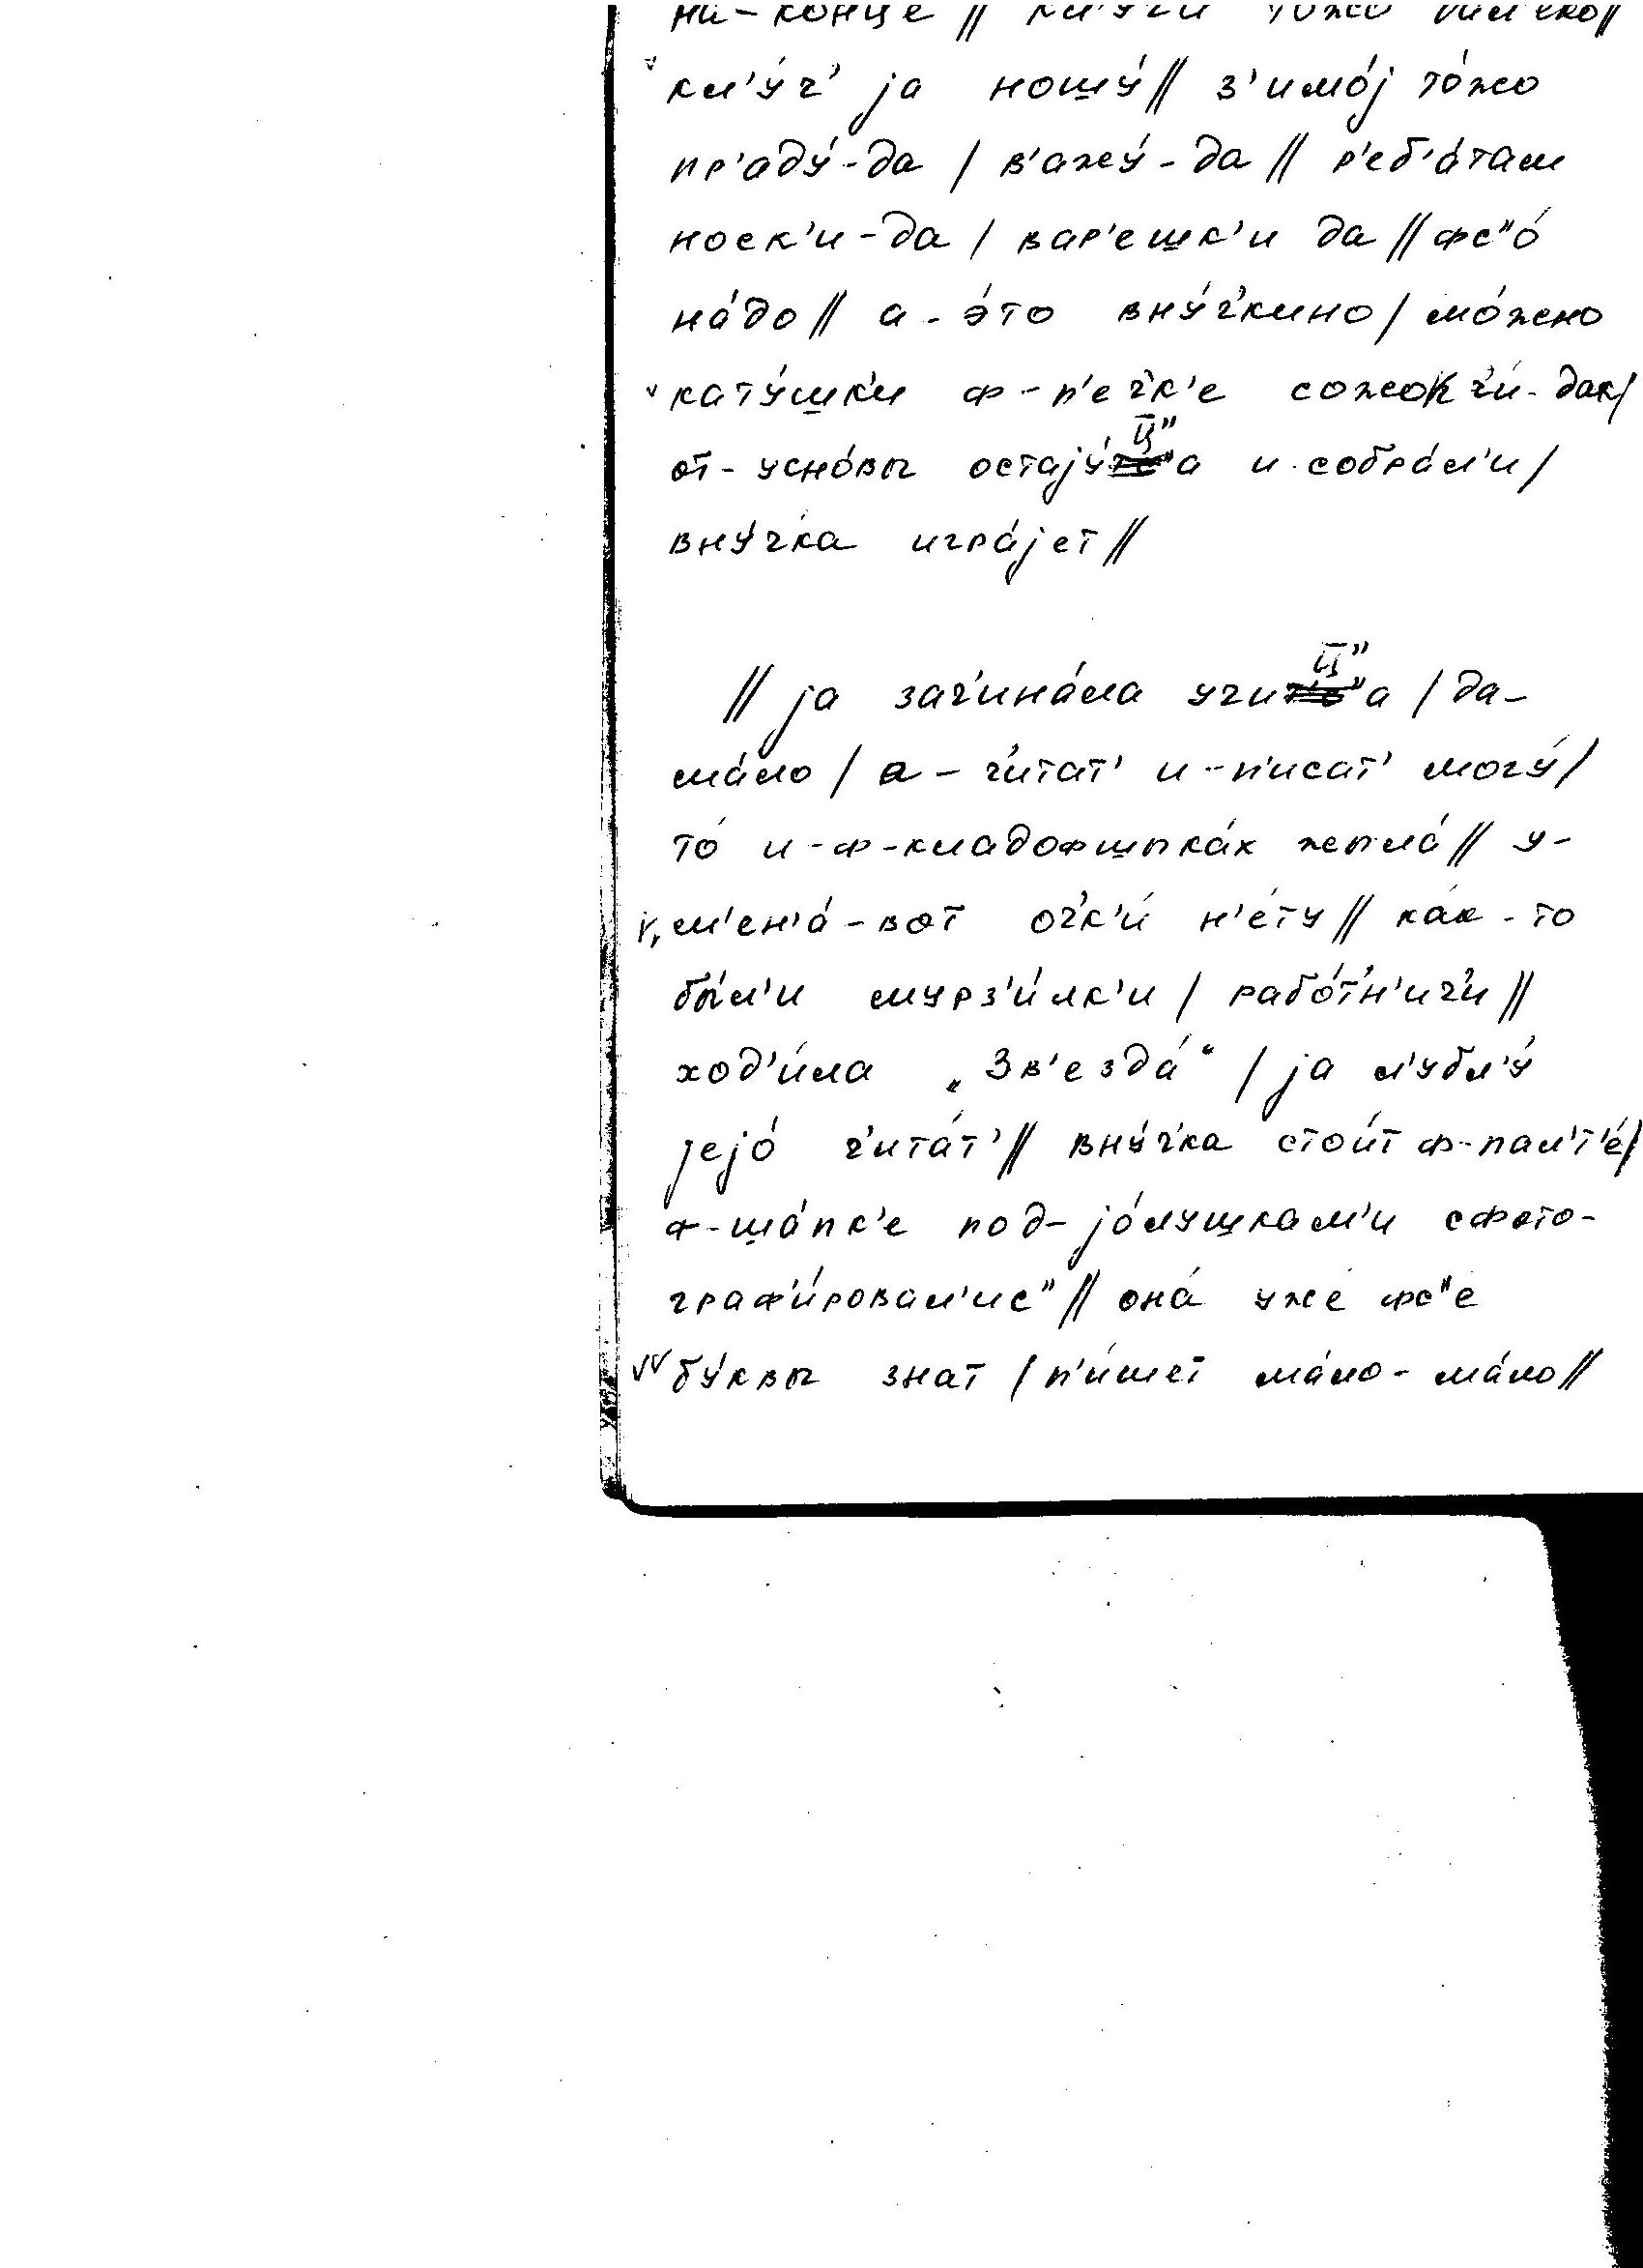 на-конце // кл'уч'и тожо
кл'у́ч' jа ношу́ // з'имо́j то́жо
пр'аду́-да / в'ажу́-да // р'еб'а́там
носк'и-да / вар'ешк'и да // фс"о́
на́до // а-э́то вну́ч'кино / мо́жно
кату́шк'и ф-п'еч'к'е сожокч'и́-дак /
от-усно́вы остаjу́ц"а и собра́л'и /
вну́ч'ка игра́jет //
// jа зач'ина́ла учиц"а / да-
ма́ло / а-ч'итат' и-п'исат' могу́ /
то́ и-ф-кладофшыка́х жыла́ // у-
м'ен'а́-вот оч'к'и́ н'е́ту // ка́к-то
бы́л'и мурз'и́лк'и / рабо́тн'ич'и //
ход'и́ла „Зв'езда́“ / jа л'убл'у́
jеjо́ ч'ита́т' // вну́ч'ка стои́т ф-пал'т'е́ /
ф-ша́пк'е под-jо́лушкам'и сфото-
граф'и́ровал'ис" // она́ уже́ фс"е
бу́квы знат / п'и́шет ма́ло-ма́ло //